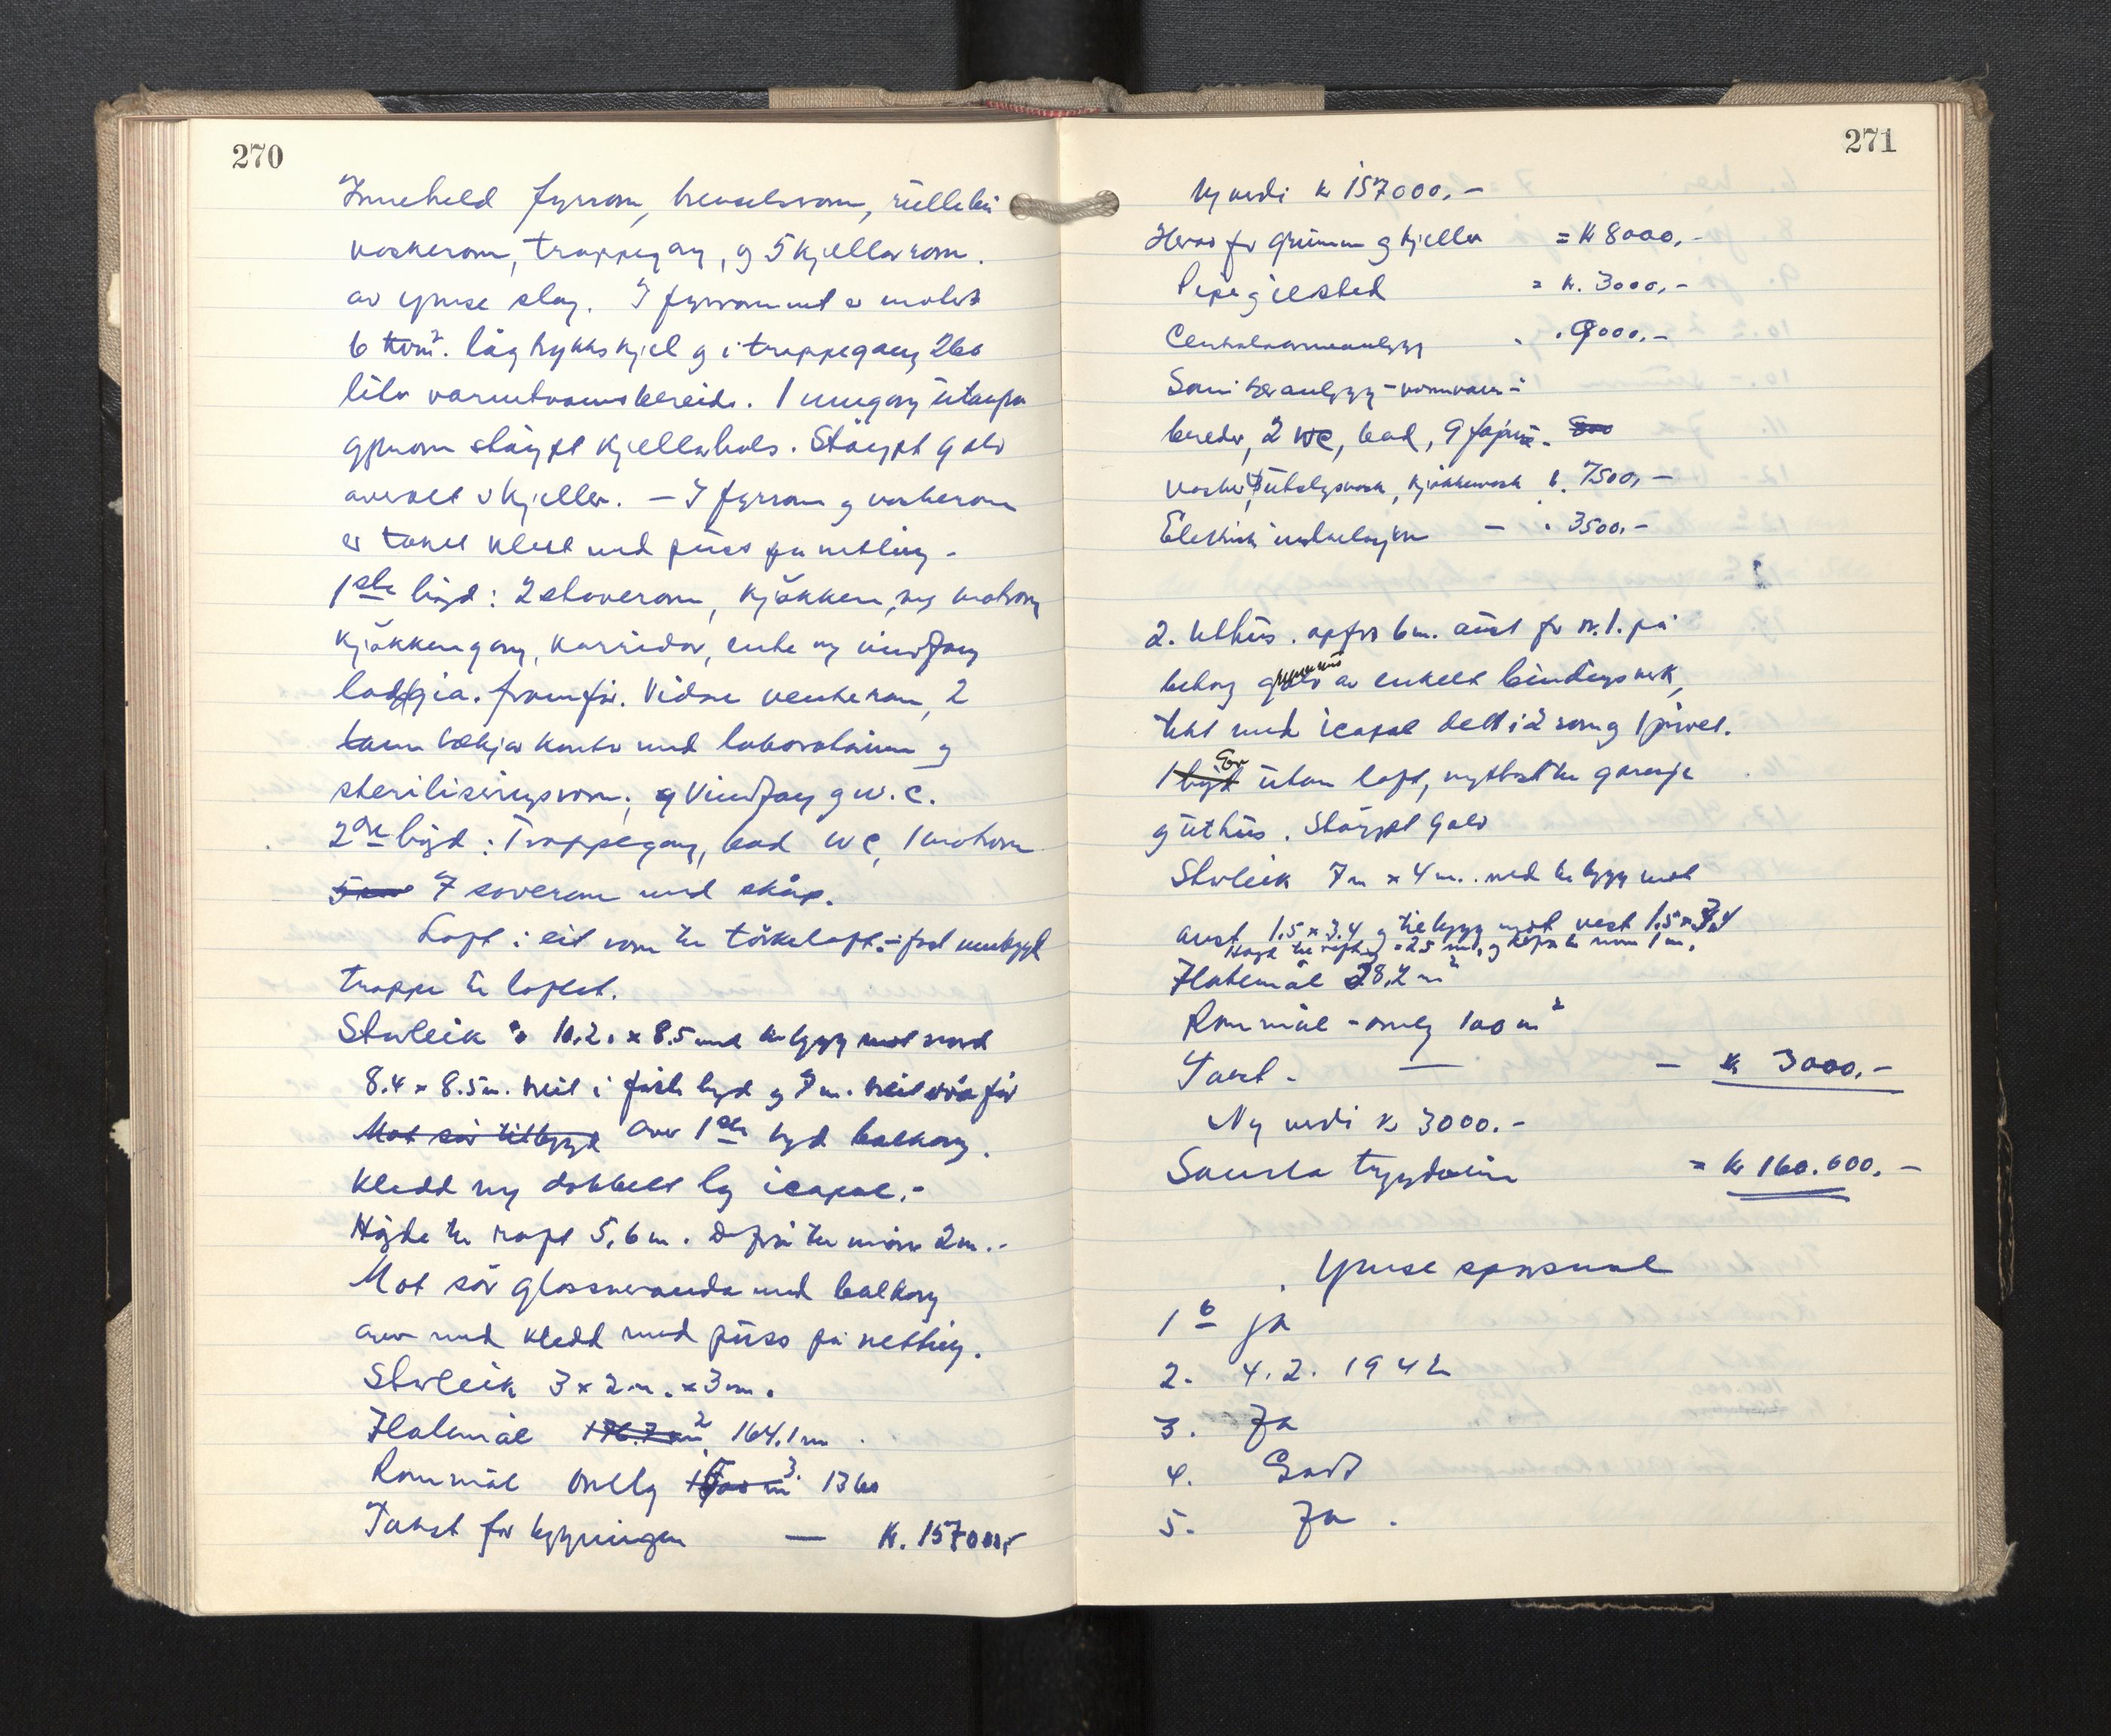 270
Inneheld fyrrom, brenselsrom, rullebu
vaskerom, trappegang, og 5 kjellarrom.
av ymse slag. I fyrrommet er molert
6 kvm². lågtrykks kjel og i trappegang 266
liter varmtvannsbereider. 1 inngang utanfra
gjenom støypt kjellarhals. Støypt golv
overalt i kjeller. — I fyrrom og vaskerom
er taket kledt med puss på netting.
1ste högd: 2 stoverom, kjökken, og matrom
kjökkengang, korridor, entre og vindfang
loddgia. framfor. Vidare venterom, 2
tannlækjar kontor med laboratorium og
steriliseringsrom, og Vindfang og W.C.
2dre högd: Trappegang, bad WC, 1 matrom
7 soverom med skåp.
Loft i eit rom til törkeloft. – fast innbygd
trappe til loftet.
Storleik 10.2. x 8.5 med tilbygg mot nord
8.4 x 8.5 m. heil i første högd og 7 m.
Mot sör tilbygd over 1ste högd balkong.
Kledd og dobbelt lag icapal.-
Högde til røft 5,6 m. Derfrå til möne 2 m.-
Mot sör glassveranda med balkong
over med kledd med puss på netting.
Storleik 3 x 2 m. x 3 m.
Flatemål 176.7 m² 164.1 m
Rommål omlag m³. 1360
Takst for bygningen — Kr. 157000,-
271
Ny verdi kr 157000,-
Herav for grunnmur og kjeller = Kr 8000,-
Pipe og ildsted = kr. 3000,-
Centralvarmeanlegg - . 9000,-
Sanitæranlegg – varmvann-
bereder, 2 WC, bad, 9 fajanse. 800
vasker, utslagsvask, kjökkenvask k. 7500,-
Elektrisk innlegg — . 3500,-
2. Uthus. oppfört 6 m. aust for nr. 1. på
betong grunnmur av enkelt bindingsverk,
tekt med icapal delt i 2 rom og 1 privet.
1 högd utan loft, nyttast til garasje
og uthus. Støypt golv
Storleik 7 m x 4 m. med tilbygg mot
aust 1.5 x 3.4 og tilbygg mot vest 1.5 x 3.4
Högd til röft 2.5 m, og derfrå til möne 1 m.
Flatemål 38,2 m²
Rommål – omlag 100 m³
Takst - — — kr 3000,-
Ny verdi kr 3000.-
Samla trygdesum = kr 160.000,-
Ymse spørsmål
1 b ja
2. 4.2. 1942
3. Ja
4. Godt
5. Ja.